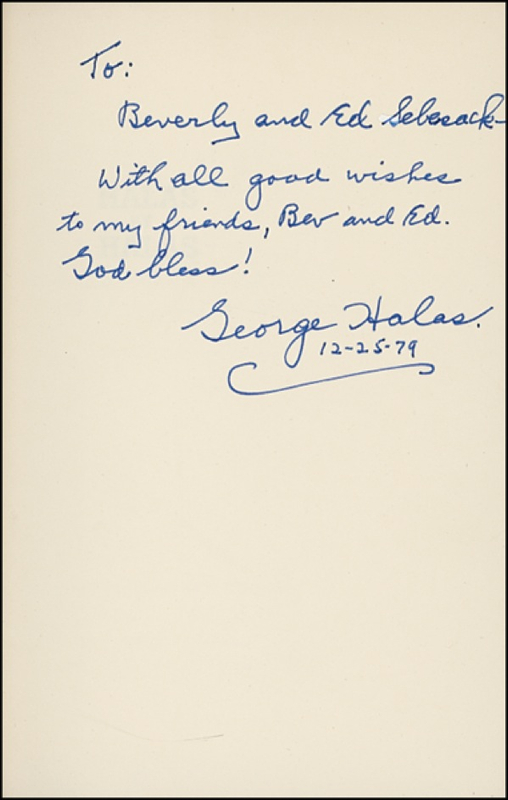 To:
Beverly and Ed Sebesack
With all good wishes
to my friends, Bev and Ed.
God bless!
George Halas.
12-25-79